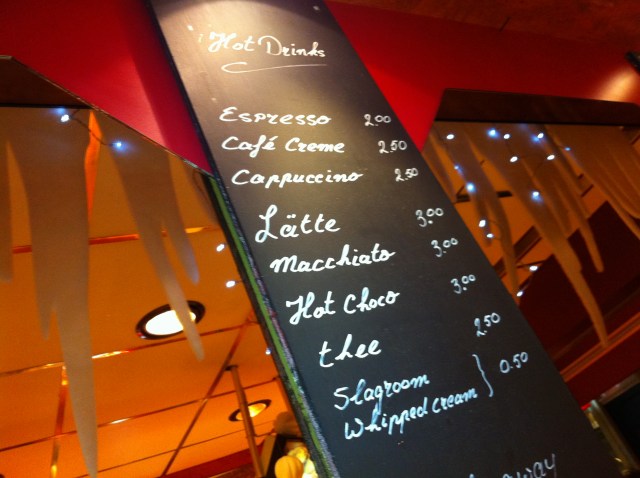 Hot Drinks
Espresso 2.00
Café Creme 2.50
Cappuccino 2.50
Lätte 3.00
Macchiato 3.00
Hot Choco 3.00
thee 2.50
Slagroom
Whipped Cream } 0.50